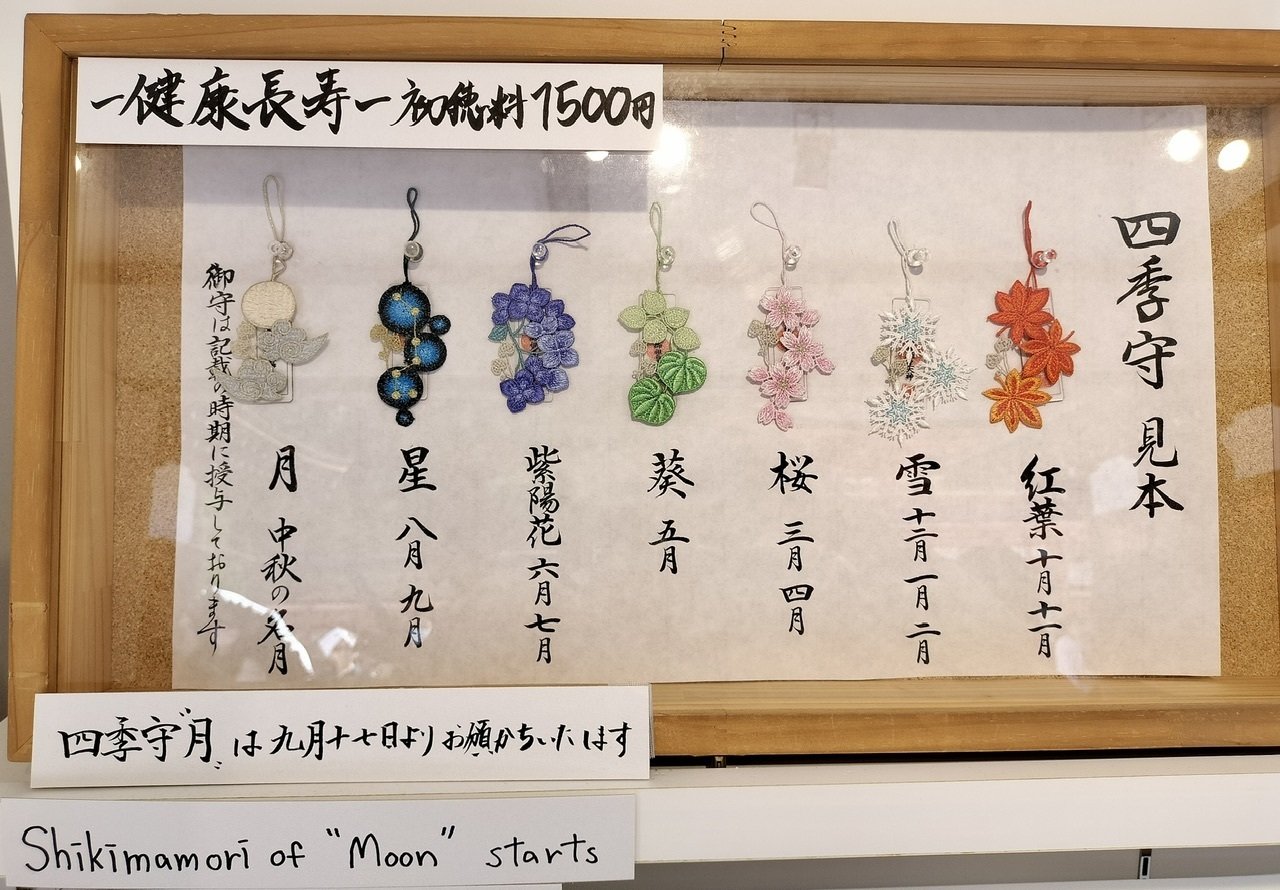 －健康長寿－ 初穂料1500円
四季守 見本
紅葉 十月十一月
雪 十二月 一月 二月
桜 三月 四月
葵 五月
紫陽花 六月 七月
星 八月 九月
月 中秋の名月
御守は記載の時期に授与しております
四季守"月"は九月十七日よりお頒かちいたします
Shikimamori of "Moon" starts